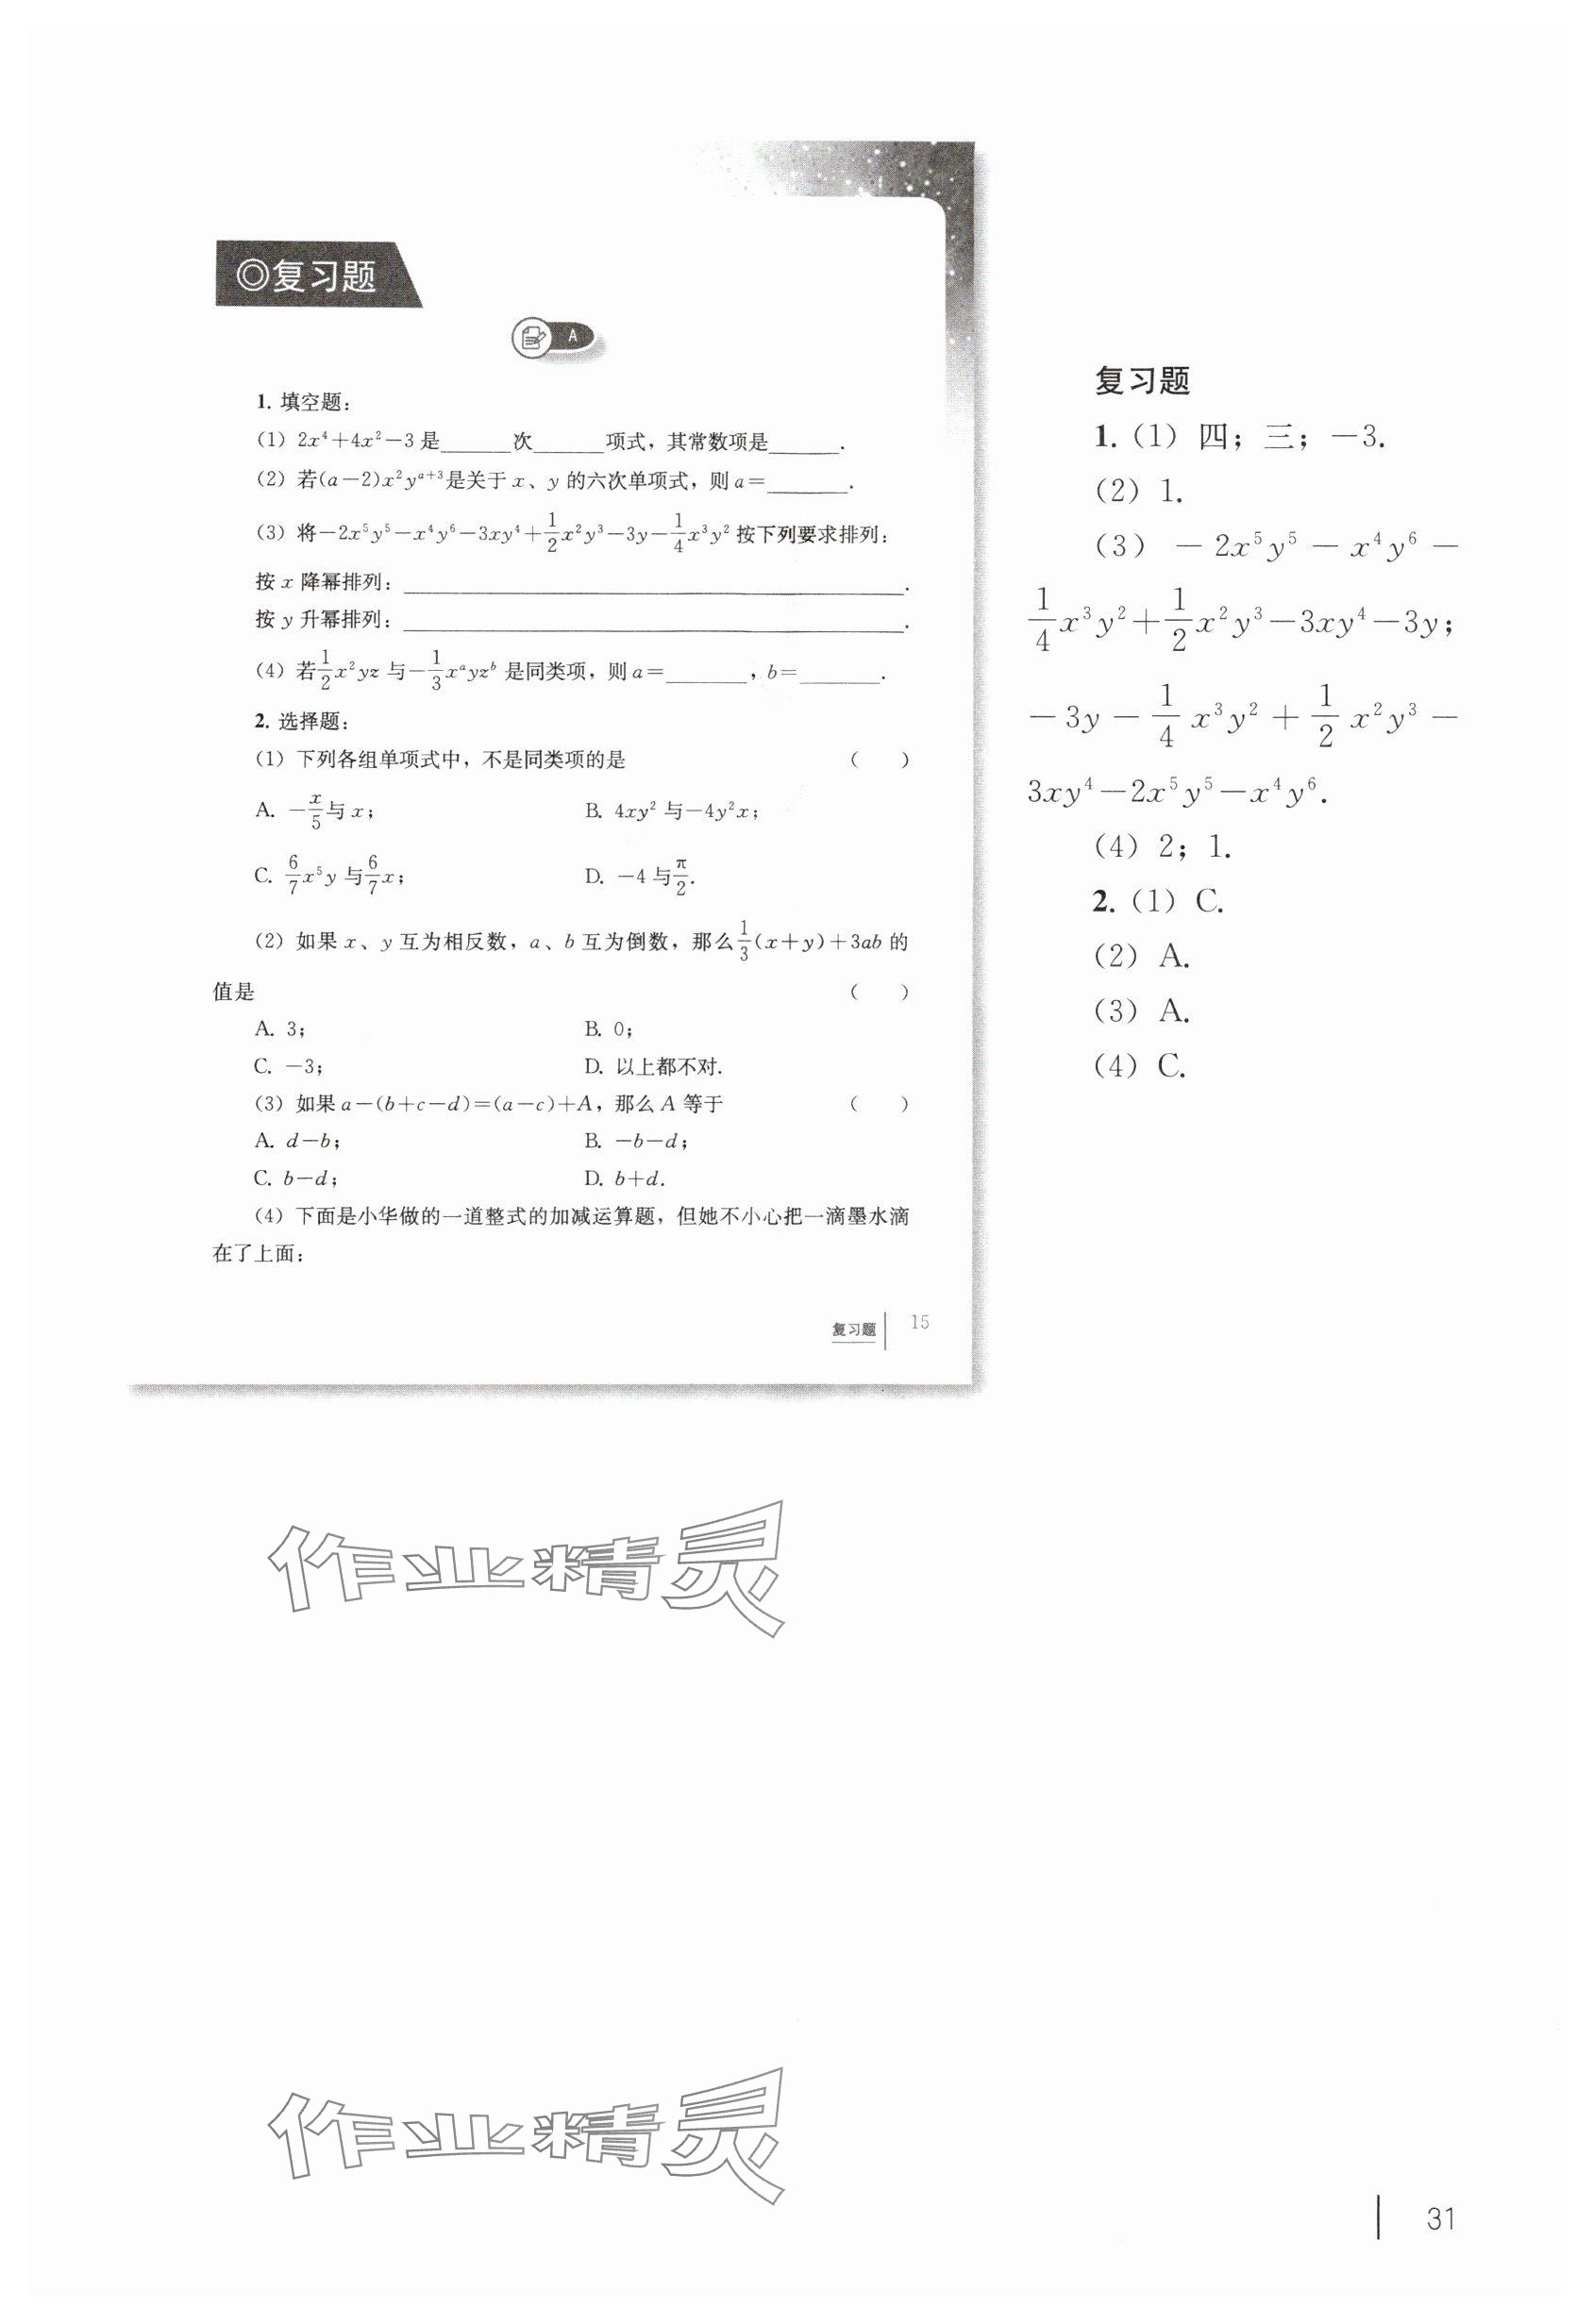 ◎复习题
A
1. 填空题：
(1) 2x⁴+4x²-3是______次______项式，其常数项是______.
(2) 若(a-2)x²yᵃ⁺³是关于x、y的六次单项式，则a=_______.
(3) 将-2x⁵y⁵-x⁴y⁶-3xy⁴+1/2x²y³-3y-1/4x³y²按下列要求排列：
按x降幂排列：______________________.
按y升幂排列：______________________.
(4) 若1/2x²yz与-1/3xᵃyzᵇ是同类项，则a=_______，b=_______.
2. 选择题：
(1) 下列各组单项式中，不是同类项的是 (　)
A. -x/5与x； B. 4xy²与-4y²x；
C. 6/7x⁵y与6/7x； D. -4与π/2.
(2) 如果x、y互为相反数，a、b互为倒数，那么1/3(x+y)+3ab的
值是 (　)
A. 3； B. 0；
C. -3； D. 以上都不对.
(3) 如果a-(b+c-d)=(a-c)+A，那么A等于 (　)
A. d-b； B. -b-d；
C. b-d； D. b+d.
(4) 下面是小华做的一道整式的加减运算题，但她不小心把一滴墨水滴
在了上面：
复习题 15
复习题
1. (1) 四；三；-3.
(2) 1.
(3) -2x⁵y⁵-x⁴y⁶-
1/4x³y²+1/2x²y³-3xy⁴-3y；
-3y-1/4x³y²+1/2x²y³-
3xy⁴-2x⁵y⁵-x⁴y⁶.
(4) 2；1.
2. (1) C.
(2) A.
(3) A.
(4) C.
作业精灵
作业精灵
31